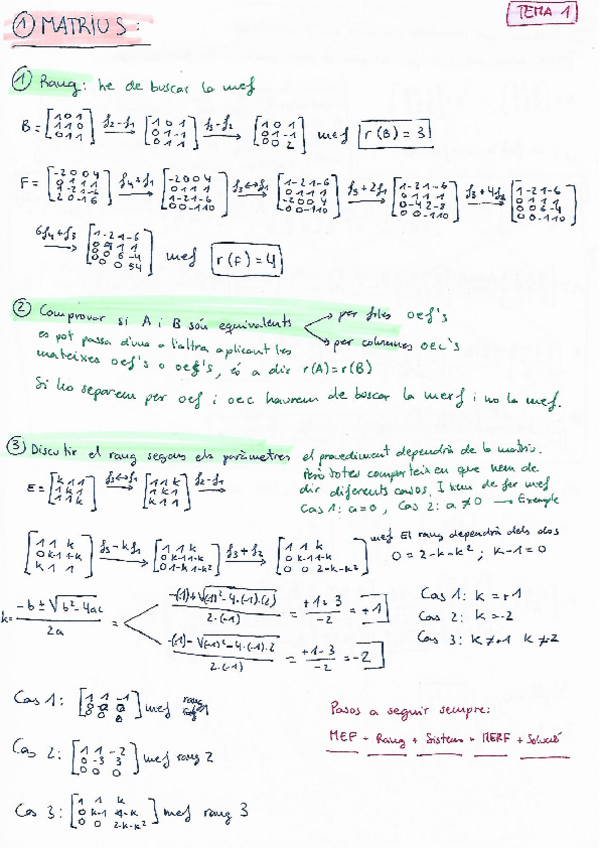 TEMA 1
① MATRIUS:
① Rang: he de buscar la mef
B = [1 0 1; 1 1 0; 0 1 1] f2-f1 → [1 0 1; 0 1 -1; 0 1 1] f3-f2 → [1 0 1; 0 1 -1; 0 0 2] mef r(B) = 3
F = [-2 0 0 4; 0 1 1 1; 1 -2 -1 -6; 2 0 -1 6] f4+f1 → [-2 0 0 4; 0 1 1 1; 1 -2 1 -6; 0 0 -1 10] f3↔f1 → [1 -2 1 -6; 0 1 1 1; -2 0 0 4; 0 0 -1 10] f3+2f1 → [1 -2 1 -6; 0 1 1 1; 0 -4 2 -8; 0 0 -1 10] f3+4f2 → [1 -2 1 -6; 0 1 1 1; 0 0 6 -4; 0 0 -1 10]
6f4+f3 → [1 -2 1 -6; 0 1 1 1; 0 0 6 -4; 0 0 0 54] mef r(F) = 4
② Comprovar si A i B són equivalents → per files oef's
→ per columnes oec's
es pot passa d'una a l'altra aplicant les
mateixes oef's o oec's, és a dir r(A)=r(B)
Si ho separem per oef i oec haurem de buscar la merf i no la mef.
③ Discutir el rang segons els paràmetres
el procediment dependrà de la matriu.
Però totes comparteixen que hem de
dir diferents casos. I hem de fer mef
Cas 1: a=0, Cas 2: a≠0 → Exemple
E = [k 1 1; 1 k 1; 1 1 k] f3↔f1 → [1 1 k; 1 k 1; k 1 1] f2-f1 →
[1 1 k; 0 k-1 1-k; k 1 1] f3-kf1 → [1 1 k; 0 k-1 1-k; 0 1-k 1-k²] f3+f2 → [1 1 k; 0 k-1 1-k; 0 0 2-k-k²] mef El rang dependrà dels dos
0 = 2-k-k² ; k-1=0
k = -b ± √b²-4ac / 2a = -(-1)+√(-1)²-4·(-1)·(2) / 2·(-1) = +1+3 / -2 = +1
-(-1)-√(-1)²-4·(-1)·2 / 2·(-1) = +1-3 / -2 = -2
Cas 1: k=+1
Cas 2: k=-2
Cas 3: k≠+1 k≠2
Cas 1: [1 1 -1; 0 0 0; 0 0 0] mef rang 1
Cas 2: [1 1 -2; 0 -3 3; 0 0 0] mef rang 2
Cas 3: [1 1 k; 0 k-1 1-k; 0 0 2-k-k²] mef rang 3
Pasos a seguir sempre:
MEF + Rang + Sistema + MERF + Solució